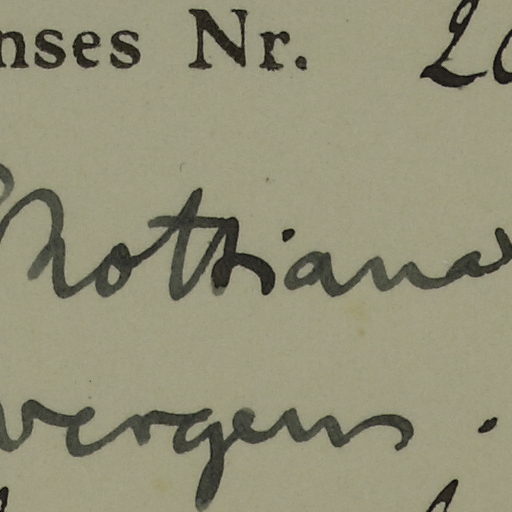 nses Nr. 20
nothiana
vergens.